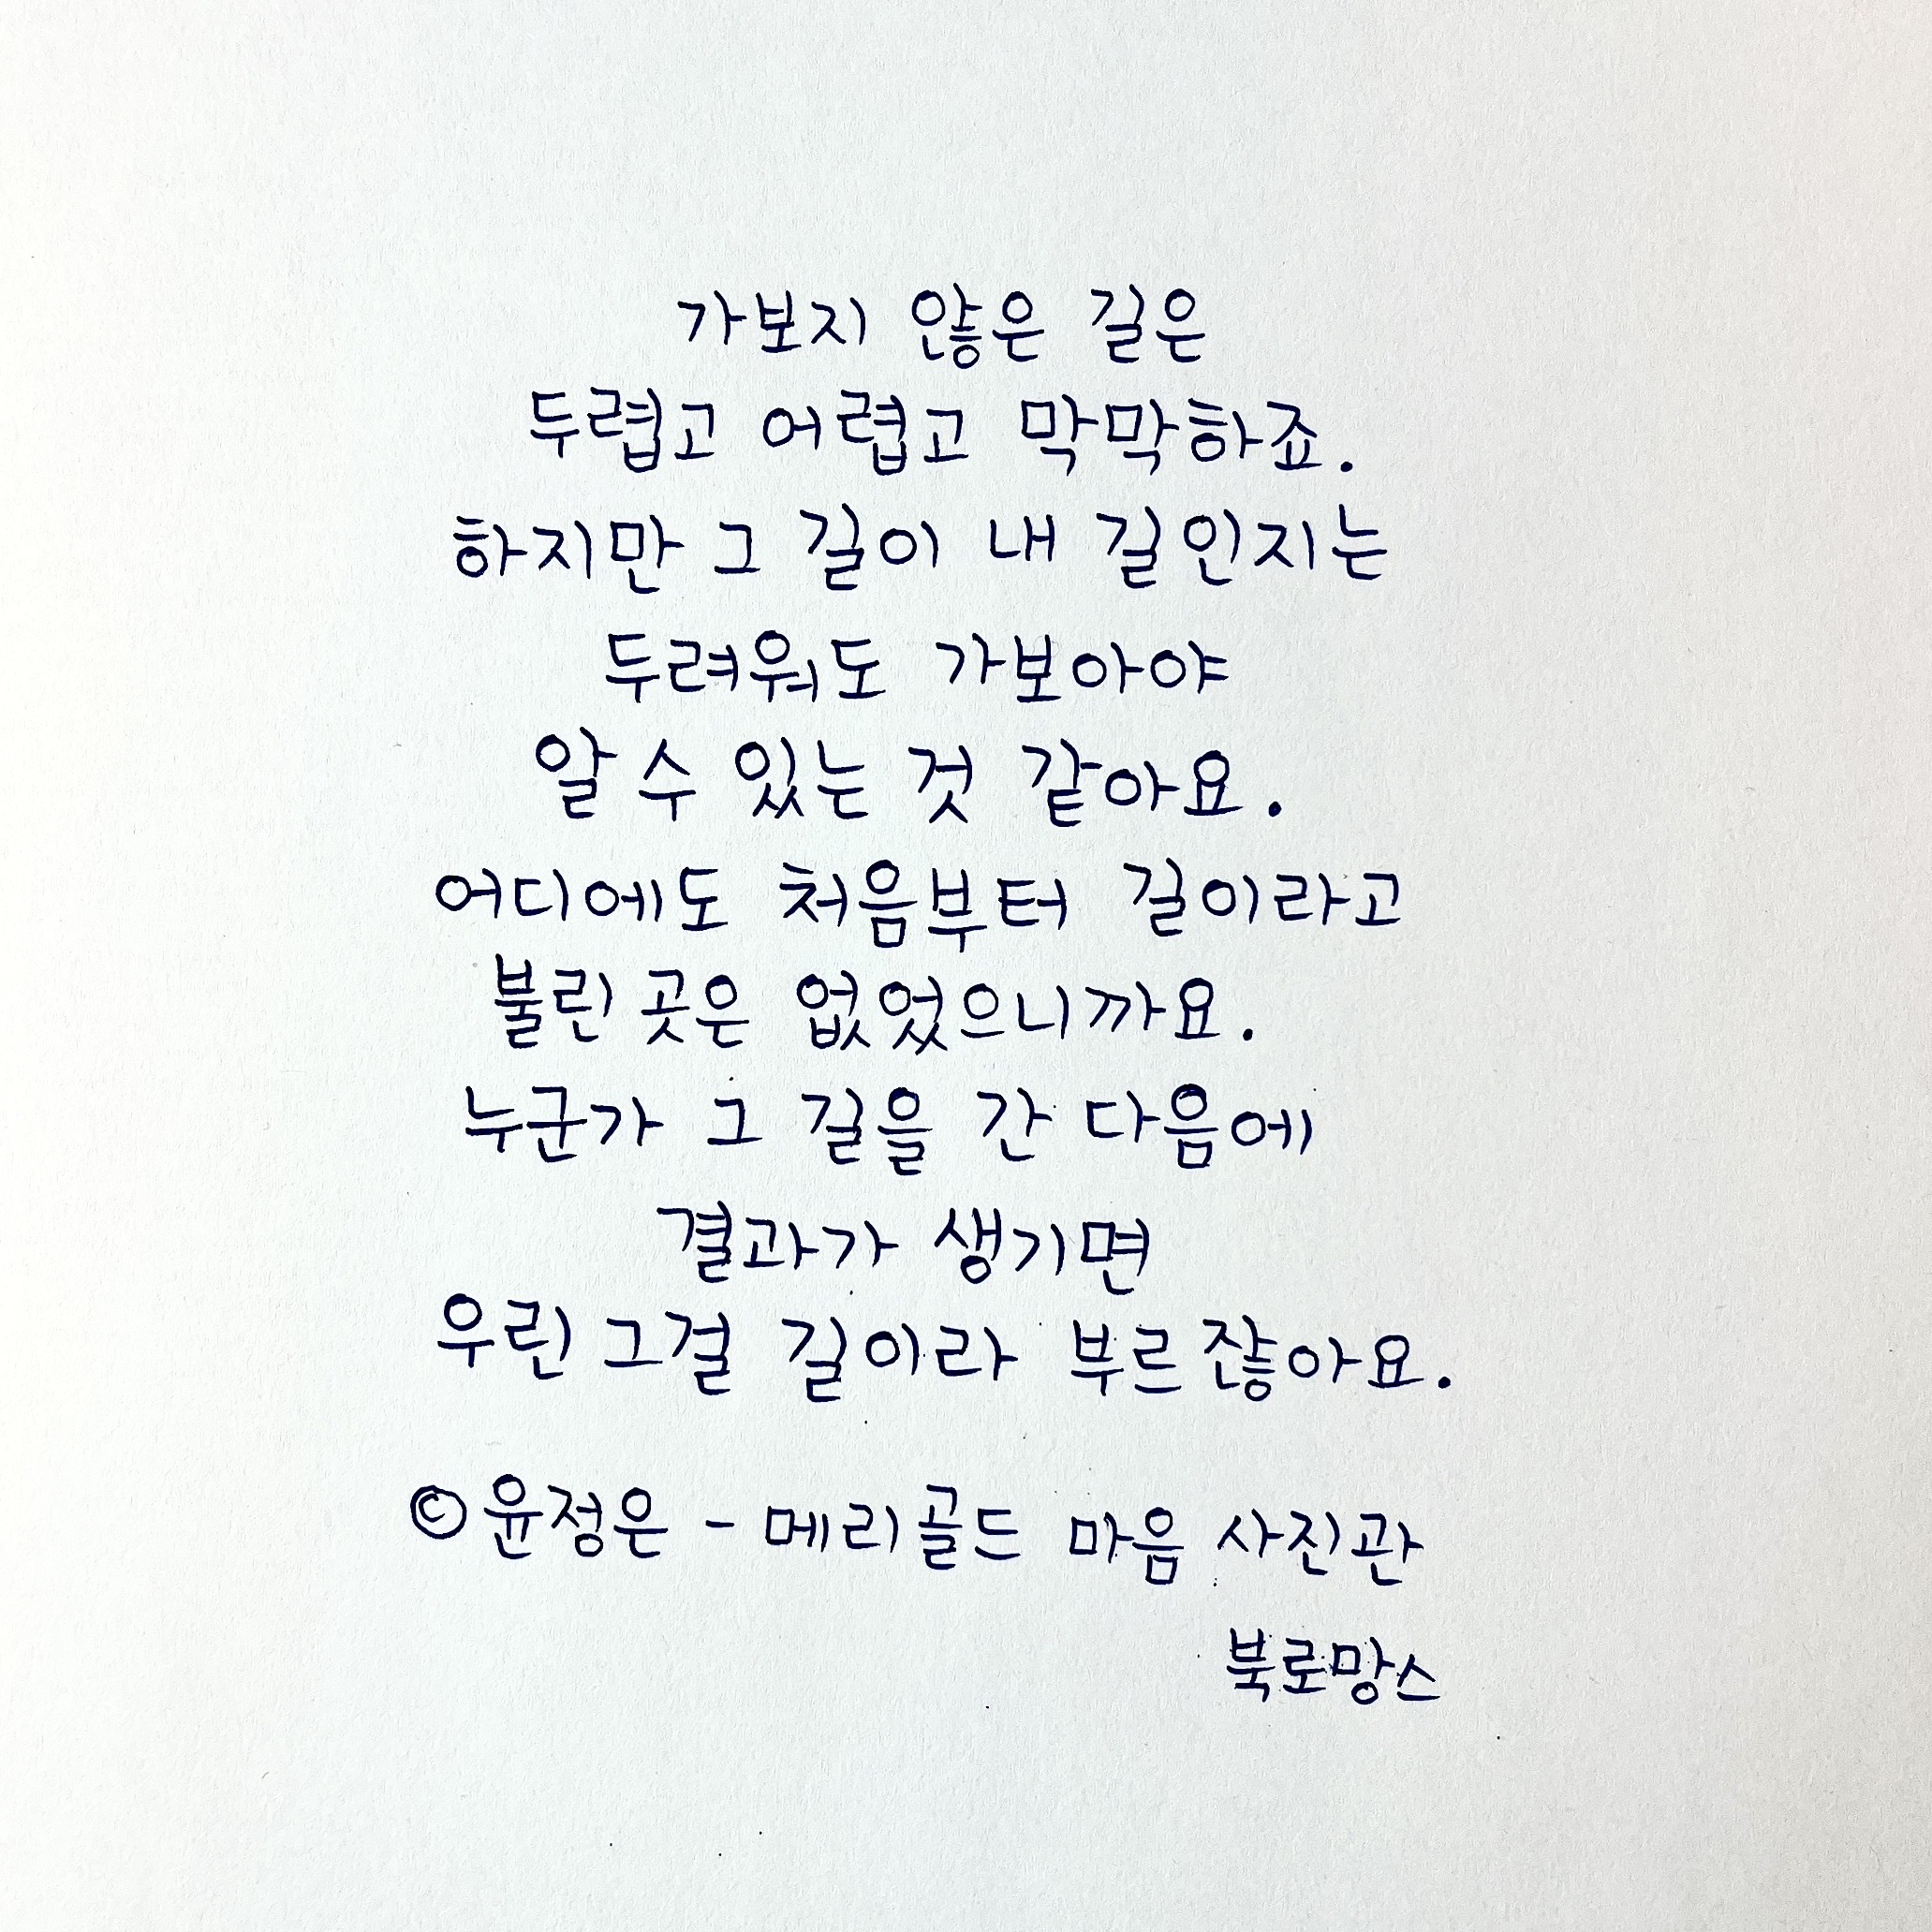 가보지 않은 길은
두렵고 어렵고 막막하죠.
하지만 그 길이 내 길인지는
두려워도 가보아야
알 수 있는 것 같아요.
어디에도 처음부터 길이라고
불린 곳은 없었으니까요.
누군가 그 길을 간 다음에
결과가 생기면
우린 그걸 길이라 부르잖아요.
©윤정은 - 메리골드 마음 사진관
북로망스